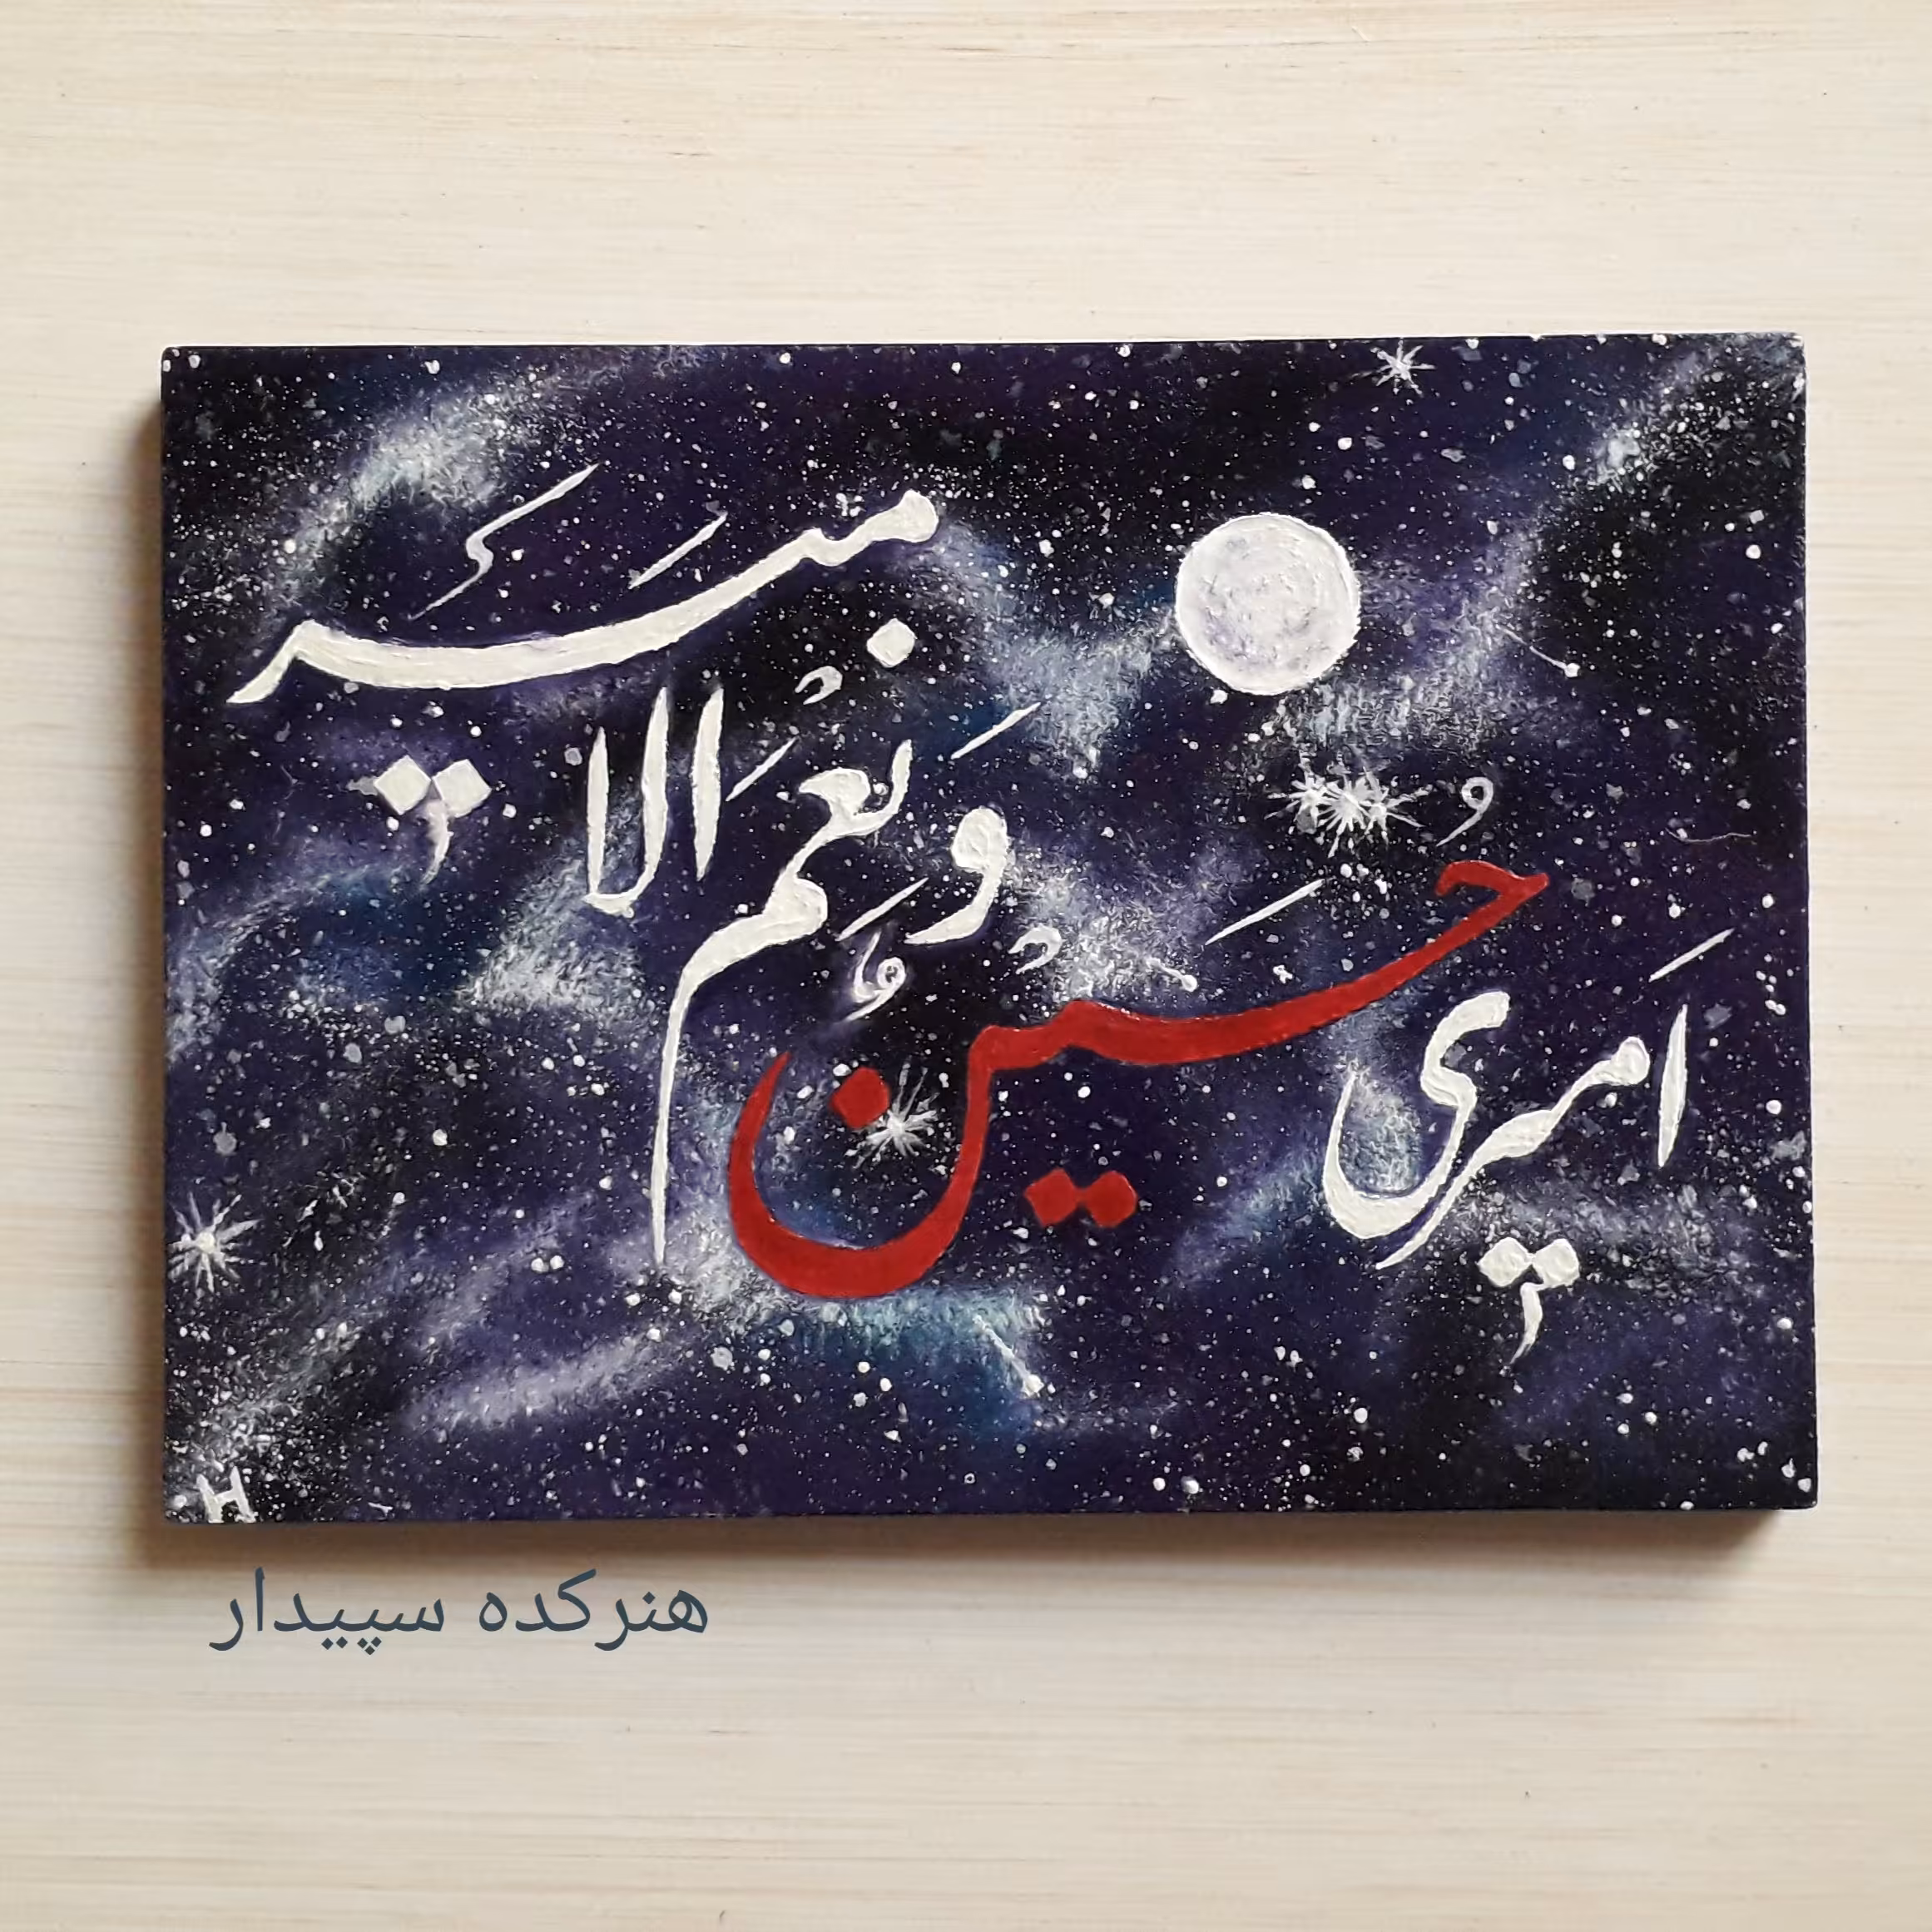 اَمیری حُسَیْنٌ وَ نِعْمَ الاَمیرُ
هنرکده سپیدار
H